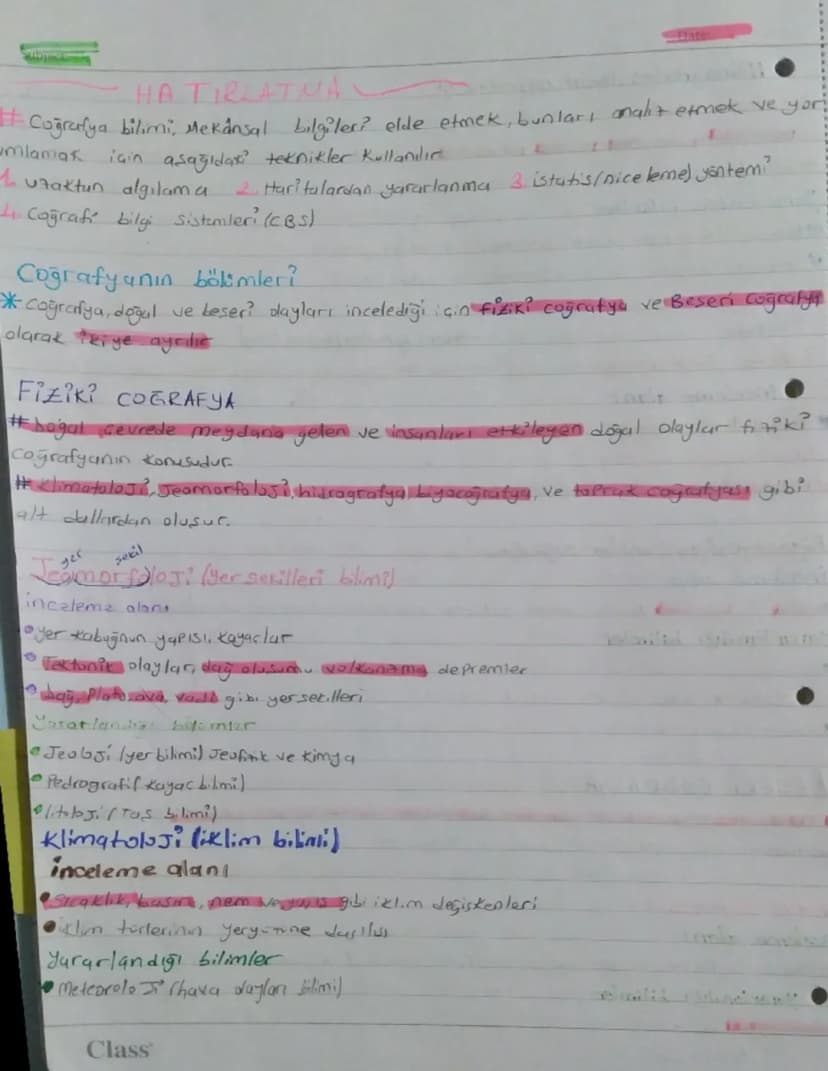 HATIRLATMA
# Coğrafya bilimi, Mekânsal bilgileri elde etmek, bunları analiz etmek ve yor
umlamak için aşağıdaki teknikler kullanılır
1. uzaktan algılama 2. Haritalardan yararlanma 3. istatis/niceleme) yöntemi
4. Coğrafi bilgi sistemleri (CBS)
Coğrafyanın bölümleri
* Coğrafya, doğal ve beşeri olayları incelediği için fiziki coğrafya ve Beşeri coğrafya
olarak ikiye ayrılır
FİZİKİ COĞRAFYA
# Doğal çevrede meydana gelen ve insanları etkileyen doğal olaylar fiziki
coğrafyanın konusudur.
# Klimatoloji, Jeomorfoloji, hidrografya, biyocoğrafya, ve toprak coğrafyası gibi
alt dallardan oluşur.
yer şekil
Jeomorfoloji (yer şekilleri bilimi)
inceleme alanı
• yer kabuğnun yapısı, kayaçlar
• Tektonik olaylar, dağ oluşumu volkanizma depremler
• Dağ, Plato, ova, vadi gibi yer şekilleri
Yararlandığı bilimler
• Jeoloji (yer bilimi) Jeofizik ve kimya
• Pedrografi (kayaç bilmi)
• litoloji (Taş bilimi)
Klimatoloji (iklim bilimi)
inceleme alanı
• Sıcaklık, basınç, nem ve yağış gibi iklim değişkenleri
• iklim türlerinin yeryüzüne dağılışı
Yararlandığı bilimler
• Meteoroloji (hava olayları bilimi)
Class